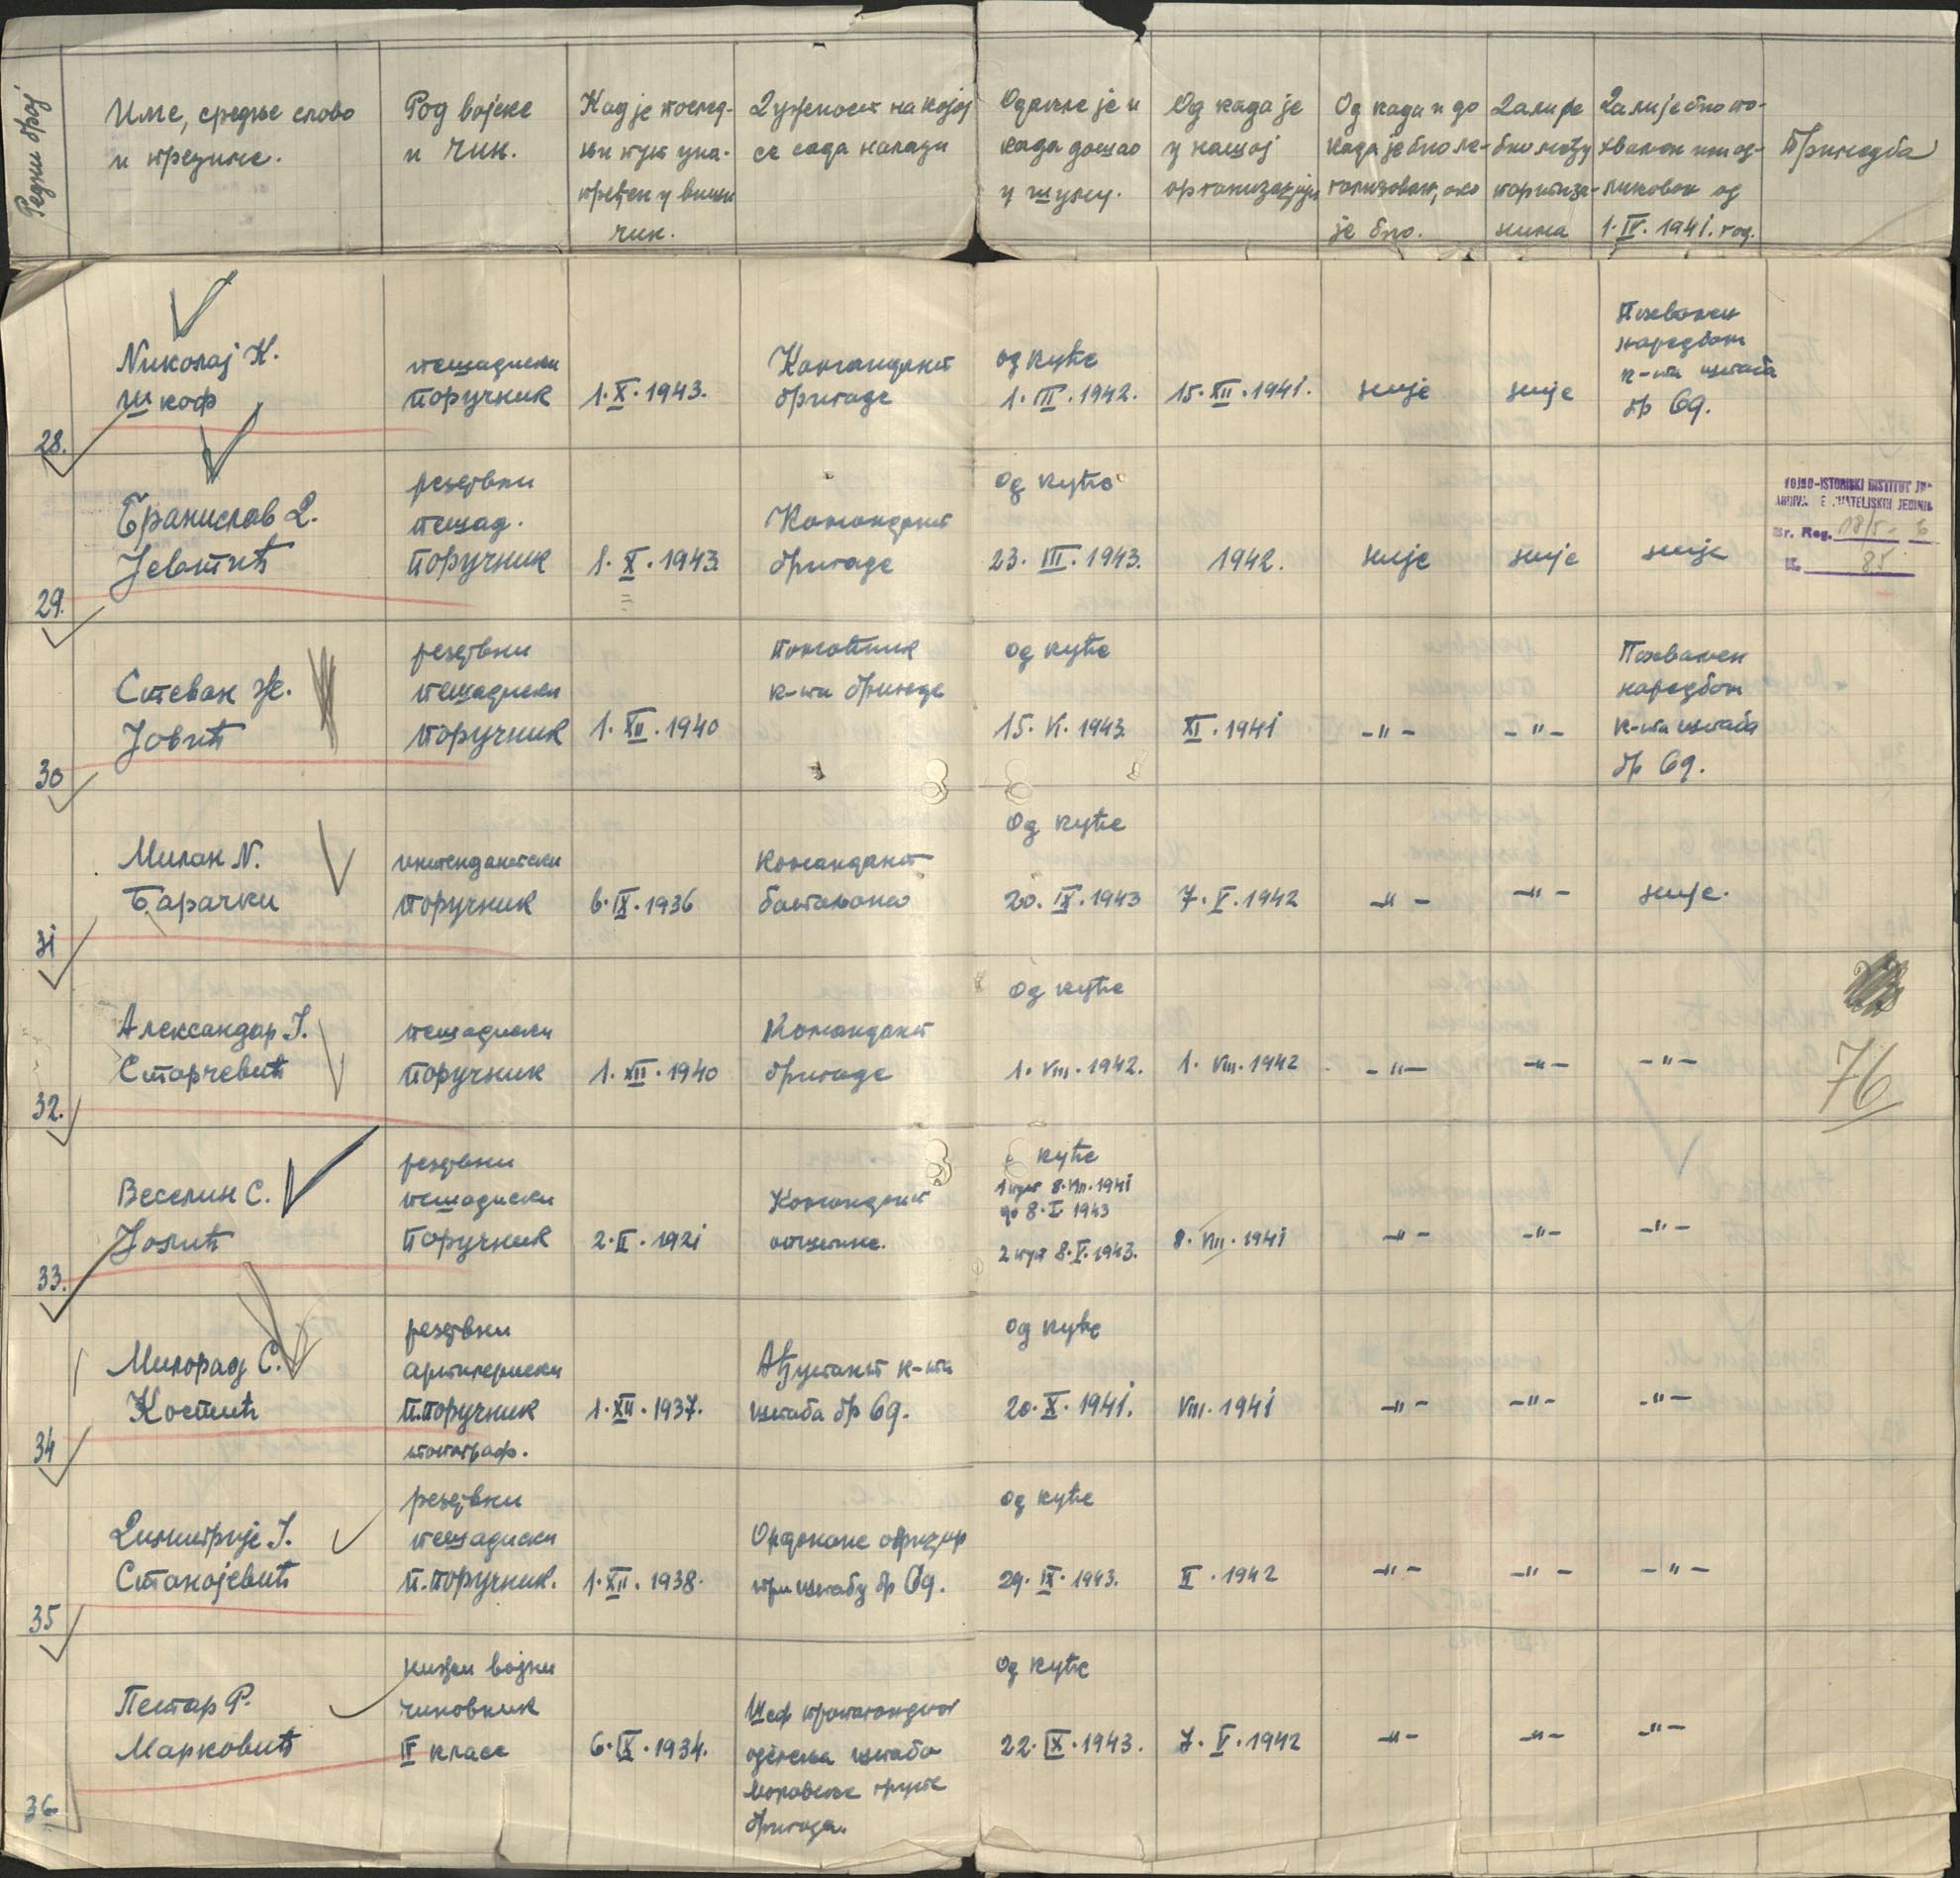 Редни број
Име, средње слово
и презиме.
Род војске
и чин.
Кад је послед-
њи пут уна-
пређен у виши
чин.
Дужност на којој
се сада налази
Одакле је и
када дошао
у шуму.
Од када је
у нашој
организацији
Од када и до
када је био ле-
гализован, ако
је био.
Да ли је
био међу
партиза-
нима
Да ли је био по-
хваљен или од-
ликован од
1. IV. 1941. год.
Примедба
28.
Николај Н.
Шкоф
пешадиски
поручник
1. X. 1943.
Командант
бригаде
од куће
1. III. 1942.
15. XII. 1941.
није
није
Похваљен
наредбом
к-та штаба
бр 69.
29.
Бранислав Д.
Јевтић
резервни
пешад.
поручник
1. X. 1943
Командант
бригаде
Од куће
23. III. 1943.
1942.
није
није
није
VOJNO-ISTORISKI INSTITUT
Br. Reg. 18/5 - 6
K. 85
30
Стеван Ж.
Јовић
резервни
пешадиски
поручник
1. XII. 1940
Помоћник
к-та бригаде
Од куће
15. VI. 1943
XI. 1941
-"-
-"-
Похваљен
наредбом
к-та штаба
бр 69.
31
Милан N.
Барачки
интендантски
поручник
6. IX. 1936
Командант
батаљона
Од куће
20. IX. 1943
7. V. 1942
-"-
-"-
није.
32.
Александар Ј.
Старчевић
пешадиски
поручник
1. XII. 1940
Командант
бригаде
Од куће
1. VIII. 1942.
1. VIII. 1942
-"-
-"-
-"-
76
33.
Веселин С.
Јолић
резервни
пешадиски
поручник
2. II. 1921
Командант
општине.
куће
1 пут 8. VIII. 1941
до 8. I. 1943
2 пут 8. V. 1943.
8. VIII. 1941
-"-
-"-
-"-
34
Милорад С.
Костић
резервни
артилериски
п.поручник
топограф.
1. XII. 1937.
Ађутант к-та
штаба бр 69.
Од куће
20. X. 1941.
VIII. 1941
-"-
-"-
-"-
35
Димитрије Ј.
Станојевић
резервни
пешадиски
п.поручник.
1. XII. 1938.
Ордонанс официр
при штабу бр 69.
Од куће
29. IX. 1943.
II. 1942
-"-
-"-
-"-
36
Петар Р.
Марковић
нижи војни
чиновник
IV класе
6. IX. 1934.
Шеф пропагандног
одељења штаба
Моравске групе
бригада.
Од куће
22. IX. 1943.
7. V. 1942
-"-
-"-
-"-